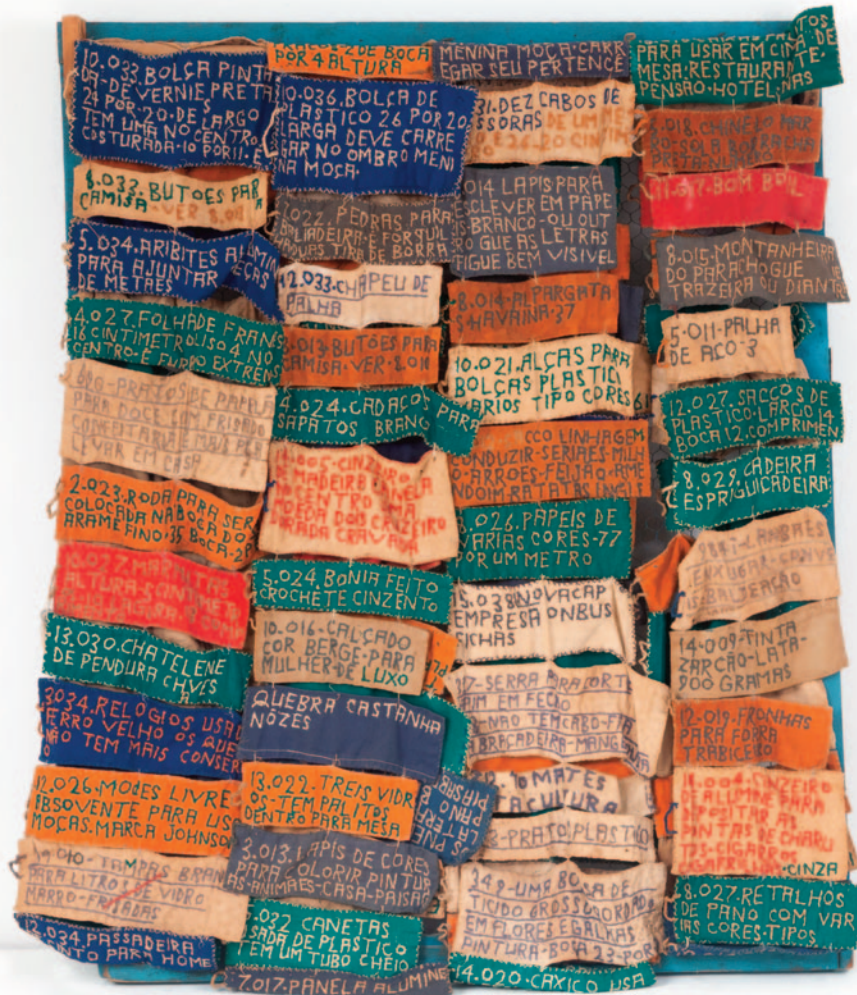 10.033.BOLÇA PINTA
DA-DE VERNIE PRETA
24 POR.20.DE LARGO
TEM UMA NO CENTRO
COSTURADA.10 POR 11.E
8.033.BUTOES PAR
CAMISA.VER.8.011
5.034.ARIBITES ALUMIN
PARA AJUNTAR PEÇAS
DE METAES
4.027.FOLHADE FRANS
18 CINTIMETRO.LISO 4 NO
CENTRO-E FURDO EXTRENS
PRATOS DE PAPELA
PARA DOCE
LEVAR EM CASA
2.023.RODA PARA SER
COLOCADA NA BOCA DO
ARAME FINO.35 BOCA.28
10.027.MARMITAS
ALTURA
13.030.CHATELENE
DE PENDURA CHVES
3.034.RELOGIOS USA
FERRO VELHO OS QUE
NÃO TEM MAIS CONSER
O
12.026.MODES LIVRE
EBSOVENTE PARA USA
MOÇAS.MARCA JOHNSON
TAMPAS BRAN
PARA LITROS DE VIDRO
MARRO-FRIZADAS
12.034.PASSADEIRA
PARA HOME
2 DE BOCA
POR 4 ALTURA
10.036.BOLÇA DE
PLASTICO 26 POR 20
LARGA DEVE CARRE
GAR NO OMBRO MENI
NA MOÇA.
.022.PEDRAS PARA
BALIADEIRA-E FORQUIL
TIRA DE BORRA
12.033.CHAPEU DE
PALHA
8.013.BUTÕES PARA
CAMISA.VER.8.011
4.024.CADAÇOS PARA
SAPATOS BRANC
.005-CINZEIRO
DE MADEIRA
CENTRO UMA
MOEDA DOIS CRUZEIRO
CRAVADA
5.024.BONIA FEITO
CROCHETE CINZENTO
10.016-CALÇADO
COR BERGE-PARA
MULHER-DE LUXO
QUEBRA CASTANHA
NÓZES
13.022.TREIS VIDR
OS-TEM PALITOS
DENTRO PARA MESA
3.013.LAPIS DE CORES
PARA COLORIR PINTUR
AS-ANIMAES-CASA-PAISAG
.032 CANETAS
USADA DE PLASTICO
TEM UM TUBO CHEIO
7.017-PANELA ALUMINE
MENINA MOÇA-CARR
EGAR SEU PERTENCE
31.DEZ CABOS DE
DE UM ME
E 26.20 CINTIM
014 LAPIS PARA
ESCLEVER EM PAPE
BRANCO-OU OUT
RO QUE AS LETRAS
FIGUE BEM VISIVEL
8.014-ALPARGATA
HAVAINA-37
10.021.ALÇAS PARA
BOLÇAS PLASTICA
VARIOS TIPO CORES
LINHAGEM
CONDUZIR-SERIAES-MILH
ARROES-FEIJÃO-AME
NDOIM-BATATAS
3.026.PAPEIS DE
VARIAS CORES-77
POR UM METRO
15.038.NOVACAP
EMPRESA ONBUS
FICHAS
SERRA PARA CORTE
EM FECIO
-NÃO TEM CABO-FI
ABRAÇADEIRA-MANG
TOMATES
CULTURA
PRATO PLASTICO
249-UMA BOLSA DE
TICIDO GROSSO BORDADO
EM FLORES E GALHAS
PINTURA-BOCA 23.POR
14.020-CAXICO USA
PARA USAR EM CIMA DE
MESA.RESTAURANTE.
PENSÃO.HOTEL.NAS
.018.CHINELO MAR
RO-SOLA BORRACHA
PRETA
11.017-BOM BRIL
8.015.MONTANHEIRA
DO PARACHOGUE
TRAZEIRA OU DIANT
5.011-PALHA
DE AÇO-3
12.027.SACCOS DE
PLASTICO-LARGO 14
BOCA 12 COMPRIMEN
8.029.CADEIRA
ESPRIGUICADEIRA
ENXUGAR
14-009-TINTA
ZARCÃO-LATA
900 GRAMAS
12-019.FRONHAS
PARA FORRA
TRABICEIRO
.004-SINZEIRO
DE ALUMINE PARA
DEPOSITAR AS
PINTAS DE CHARU
TOS-CIGARROS
CINZA
8.027.RETALHOS
DE PANO COM VAR
IAS CORES-TIPOS.